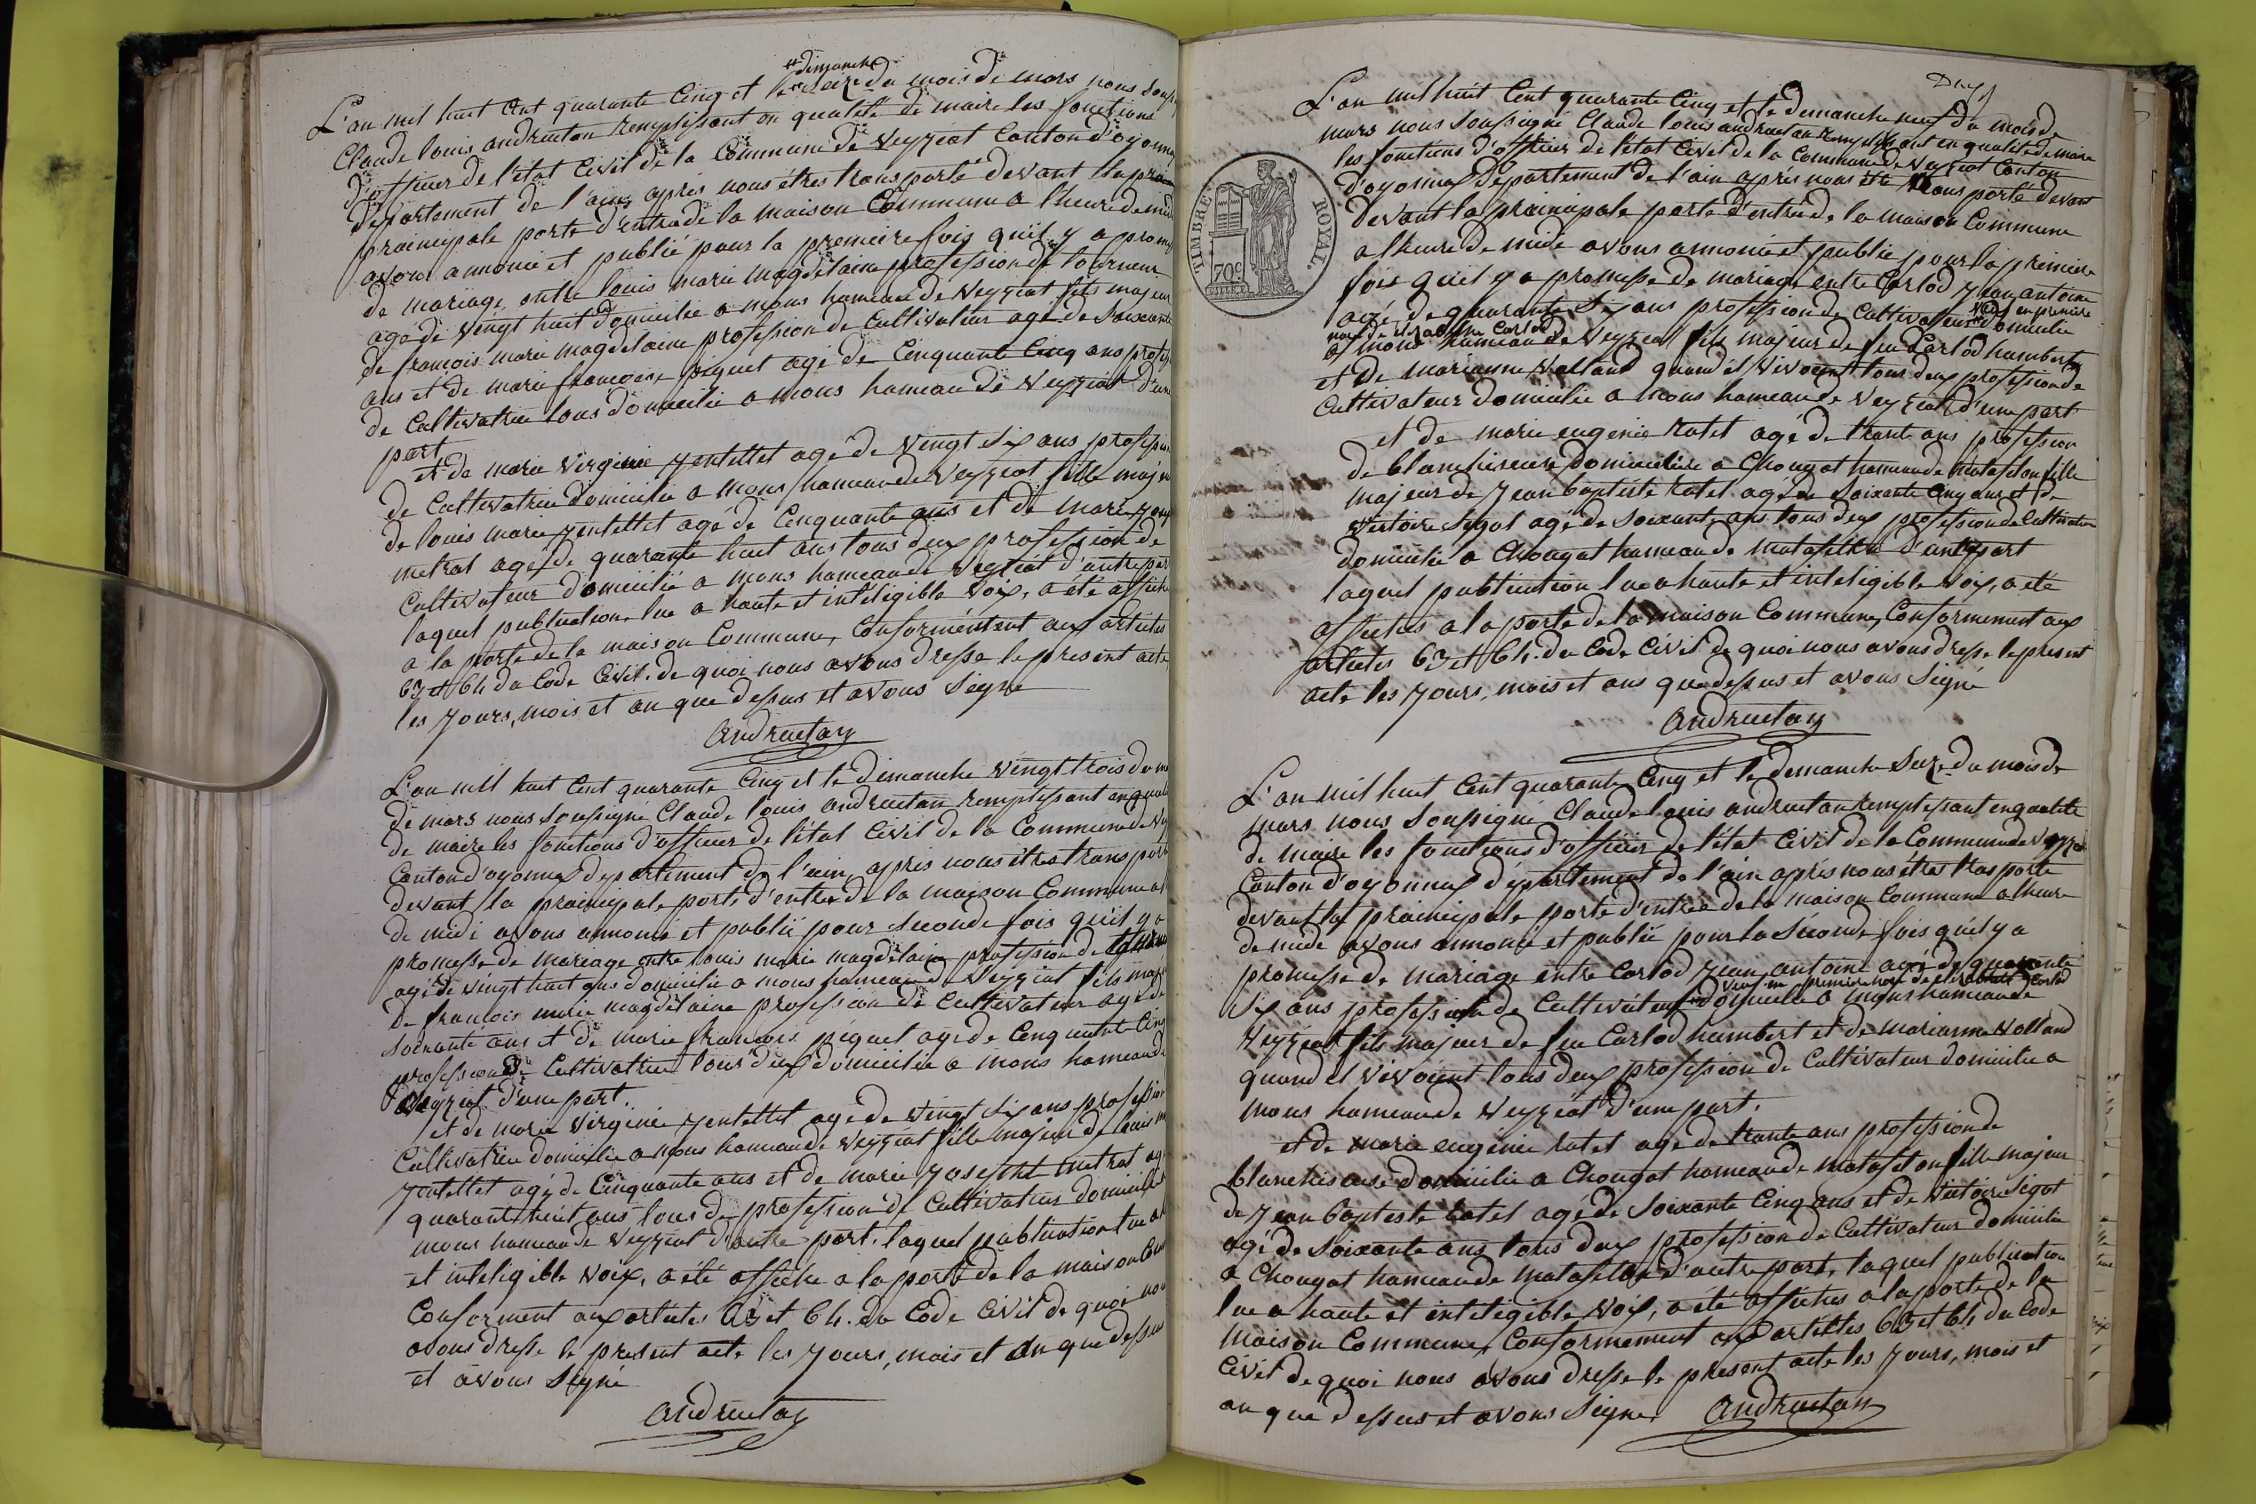 # dimanche
L'an mil huit Cent quarante Cinq et le # seize du mois de mars nous sous
Claude louis andruetan remplissant en qualité de maire les fonctions
d'officier de l'état Civil de la Commune de Veyziat Canton d'oyonna
département de l'ain, après nous êtres transporté devant la prin
prainsipale porte d'entra de la maison Commune a l'heure de midi
avons annoncé et publié pour la premeire fois qu'il y a prome
de mariage entre louis marie magdelaine profession de tourneur
agé de vingt huit domicilié a mons hameau de Veyziat fils majeur
de françois marie magdelaine profession de Cultivateur agé de Soixante
ans et de marie françoise piquet agé de Cinquante Cinq ans profes
de Cultivatrice tous domicilié a mons hameau de Veyziat d'une
part
et de marie virginie jentellet agé de vingt six ans profession
de Cultivatrice domicilié a mons hameau de Veyziat fille majeu
de louis marie jentellet agé de Cinquante ans et de marie jose
metral agé de quarante huit ans tous deux profession de
Cultivateur domicilié a mons hameau de Veyziat d'autre par
laquel publication lue a haute et inteligible voix, a été affiche
a la porte de la maison Commune, Conformément aux articles
63 et 64 du Code Civil. de quoi nous avons dressé le présent acte
les jours, mois et an que dessus et avons Signé
andruetan
L'an mil huit Cent quarante Cinq et le dimanche vingt trois du mo
de mars nous soussigné Claude louis andruetan remplissant en quali
de maire les fonctions d'officier de l'état Civil de la Commune de Vey
Canton d'oyonnax département de l'ain, après nous êtres transporté
devant la prainsipale porte d'entrée de la maison Commune a l
de midi avons annoncé et publié pour seconde fois qu'il y a
promesse de mariage entre louis marie magdelaine profession de tourneu
agé de vingt huit ans domicilié a mons hameau de Veyziat fils maje
de françois marie magdelaine profession de Cultivateur agé de
soixante ans et de marie françois piquet agé de Cinquante Cinq
profession de Cultivatrice tous deux domicilié a mons hameau de
Veyziat d'une part.
et de marie virginie jentellet agé de vingt six ans profession
Cultivatrice domicilié a mons hameau de Veyziat fille majeur de louis m
jentellet agé de Cinquante ans et de marie josephe metral ag
quarant huit ans tous de profession de Cultivateur domicilié
mons hameau de Veyziat d'autre part. laquel publication lue a
et inteligible voix, a été affiche a la porte de la maison Com
Conforment aux articles 63 et 64. du Code Civil de quoi nou
avons dressé le present acte les jours, mois et an que dessus
et avons Signé
andruetan
Dux
L'an mil huit Cent quarante Cinq et le demanche neuf du mois de
mars nous soussigné Claude louis andruetan remplissant en qualité de maire
les fonctions d'officier de l'état Civil de la Commune de Veyziat Canton
d'oyonnax département de l'ain après nous etre transporté devant
devant la prainsipale porte d'entrée de la maison Commune
a l'heure de midi avons annoncé et publié pour la premiere
fois qu'il y a promesse de mariage entre Carlod jean antoine
agé de quarante Six ans profession de Cultivateur domicilié
a mons hameau de Veyziat fils majeur de feu Carlod humbert
et de marianne Volland quand il vivoient tous deux profession de
Cultivateur domicilié a mons hameau de Veyziat d'une part
et de marie eugenie ratet agé de trante ans profession
de blanchisseuse domicilière a Chougat hameau de matafelon fille
majeur de jean baptiste ratet agé de soixante Cinq ans et de
victoire Sigot agé de Soixante ans tous deux profession de Cultivateur
domicilié a Chougat hameau de matafelon d'autre part
laquel publication lue a haute et inteligible voix, a été
affiches a la porte de la maison Commune, Conformement aux
articles 63 et 64. du Code Civil de quoi nous avons dressé le present
acte les jours, mois et ans que dessus et avons Signé
andruetan
L'an mil huit Cent quarante Cinq et le demanche Seize du mois de
mars nous soussigné Claude louis andruetan remplissant en qualité
de maire les fonctions d'officier de l'état Civil de la Commune de Veyzia
Canton d'oyonnax département de l'ain après nous êtres trasporté
devant la prainsipale porte d'entrée de la maison Commune a l'heure
de midi avons annoncé et publié pour la Seconde fois qu'il y a
promesse de mariage entre Carlod jean antoine agé de quarante
six ans profession de Cultivateur domicilié a mons hameau de
Veyziat fils majeur de feu Carlod humbert et de marianne Volland
quand il vivoient tous deux profession de Cultivateur domicilié a
mons hameau de Veyziat d'une part.
et de marie eugénie ratet agé de trante ans profession de
blanchiseuse domicilié a Chougat hameau de matafelon fille majeur
de jean baptiste ratet agé de Soixante Cinq ans et de victoire Sigot
agé de Soixante ans tous deux profession de Cultivateur domicilié
a Chougat hameau de matafelon d'autre part, laquel publication
lue a haute et inteligible voix, a été affiches a la porte de la
maison Commune Conformement aux articles 63 et 64 du Code
Civil de quoi nous avons dressé le present acte les jours, mois et
an que dessus et avons Signé andruetan
TIMBRE ROYAL.
70c